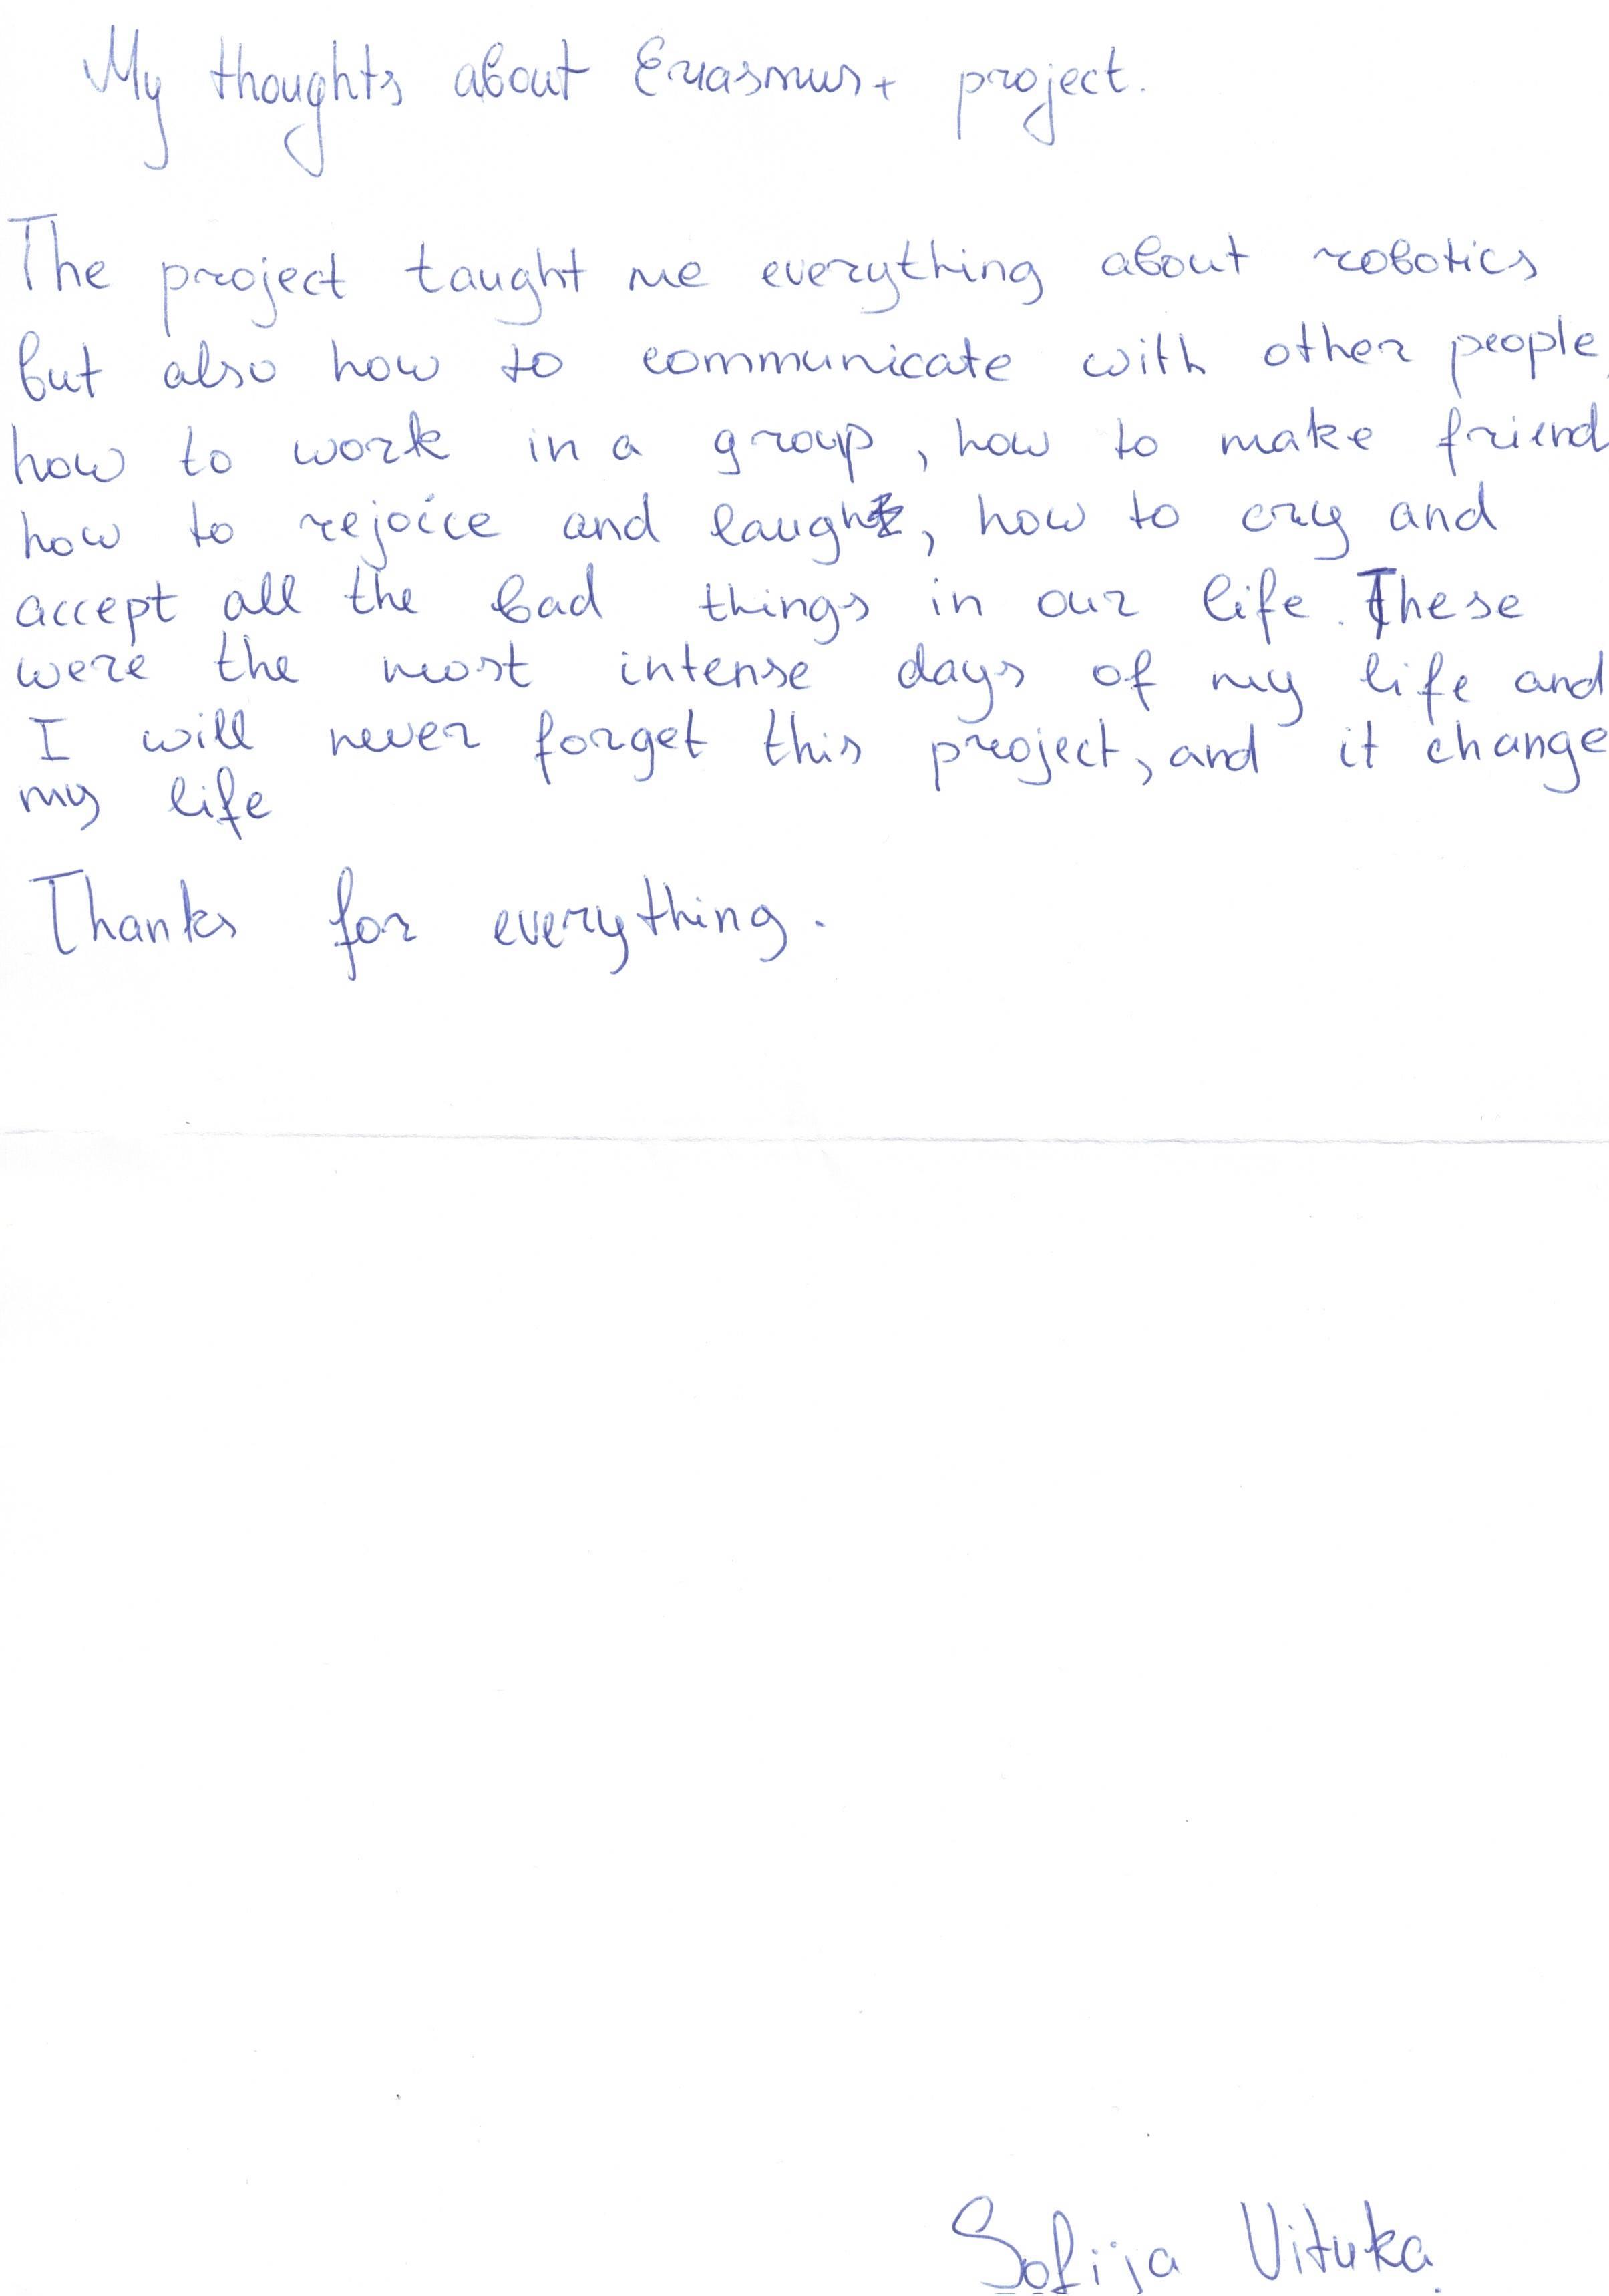 My thoughts about Erasmus+ project.
The project taught me everything about robotics
but also how to communicate with other people,
how to work in a group, how to make friend
how to rejoice and laugh, how to cry and
accept all the bad things in our life. These
were the most intense days of my life and
I will never forget this project, and it change
my life
Thanks for everything.
Sofija Vituka